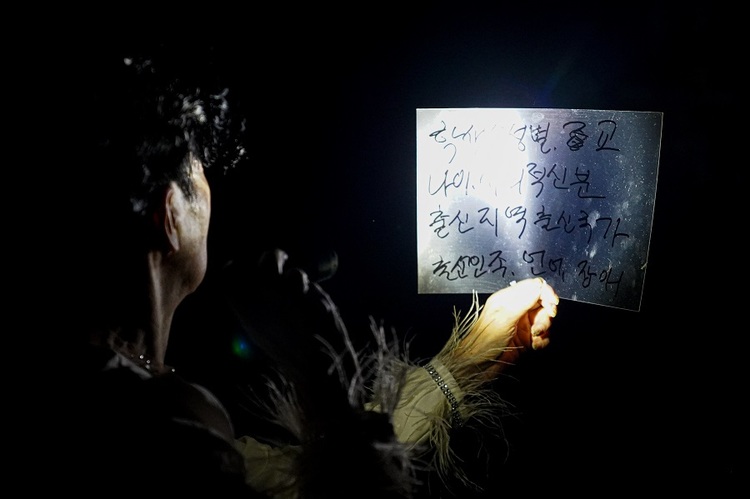 성별. 종교
나이. 사회적신분
출신지역 출신국가
출신민족. 언어. 장애